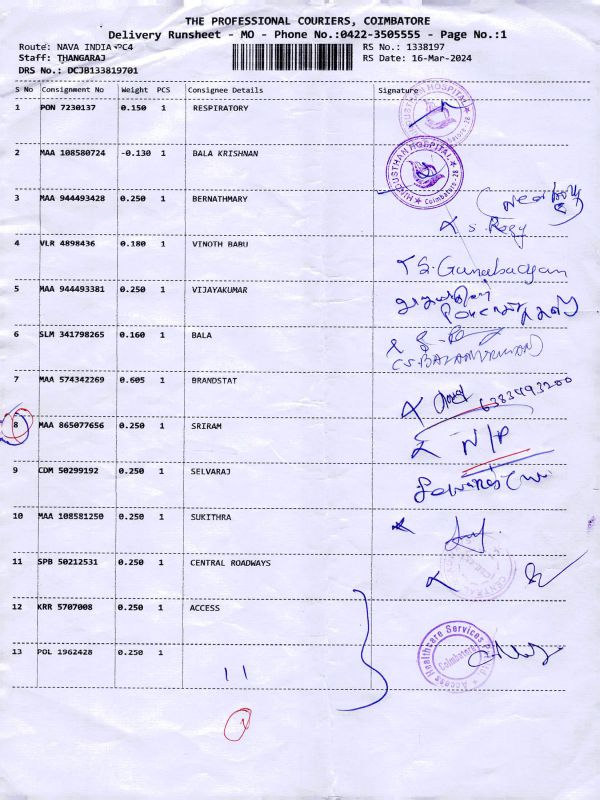 THE PROFESSIONAL COURIERS, COIMBATORE
Delivery Runsheet - MO - Phone No.:0422-3505555 - Page No.:1
Route: NAVA INDIA-PC4 RS No.: 1338197
Staff: THANGARAJ RS Date: 16-Mar-2024
DRS No.: DCJB133819701
S No Consignment No Weight PCS Consignee Details Signature
1 PON 7230137 0.150 1 RESPIRATORY
HINDUSTHAN HOSPITAL Coimbatore-28
2 MAA 108580724 -0.130 1 BALA KRISHNAN
HINDUSTHAN HOSPITAL Coimbatore-28
3 MAA 944493428 0.250 1 BERNATHMARY
4 VLR 4898436 0.180 1 VINOTH BABU
5 MAA 944493381 0.250 1 VIJAYAKUMAR
6 SLM 341798265 0.160 1 BALA
7 MAA 574342269 0.605 1 BRANDSTAT
6383493200
8 MAA 865077656 0.250 1 SRIRAM
N/P
9 CDM 50299192 0.250 1 SELVARAJ
10 MAA 108581250 0.250 1 SUKITHRA
11 SPB 50212531 0.250 1 CENTRAL ROADWAYS
CENTRAL
12 KRR 5707008 0.250 1 ACCESS
Access Healthcare Services Pvt. Ltd. Coimbatore
13 POL 1962428 0.250 1
11
1